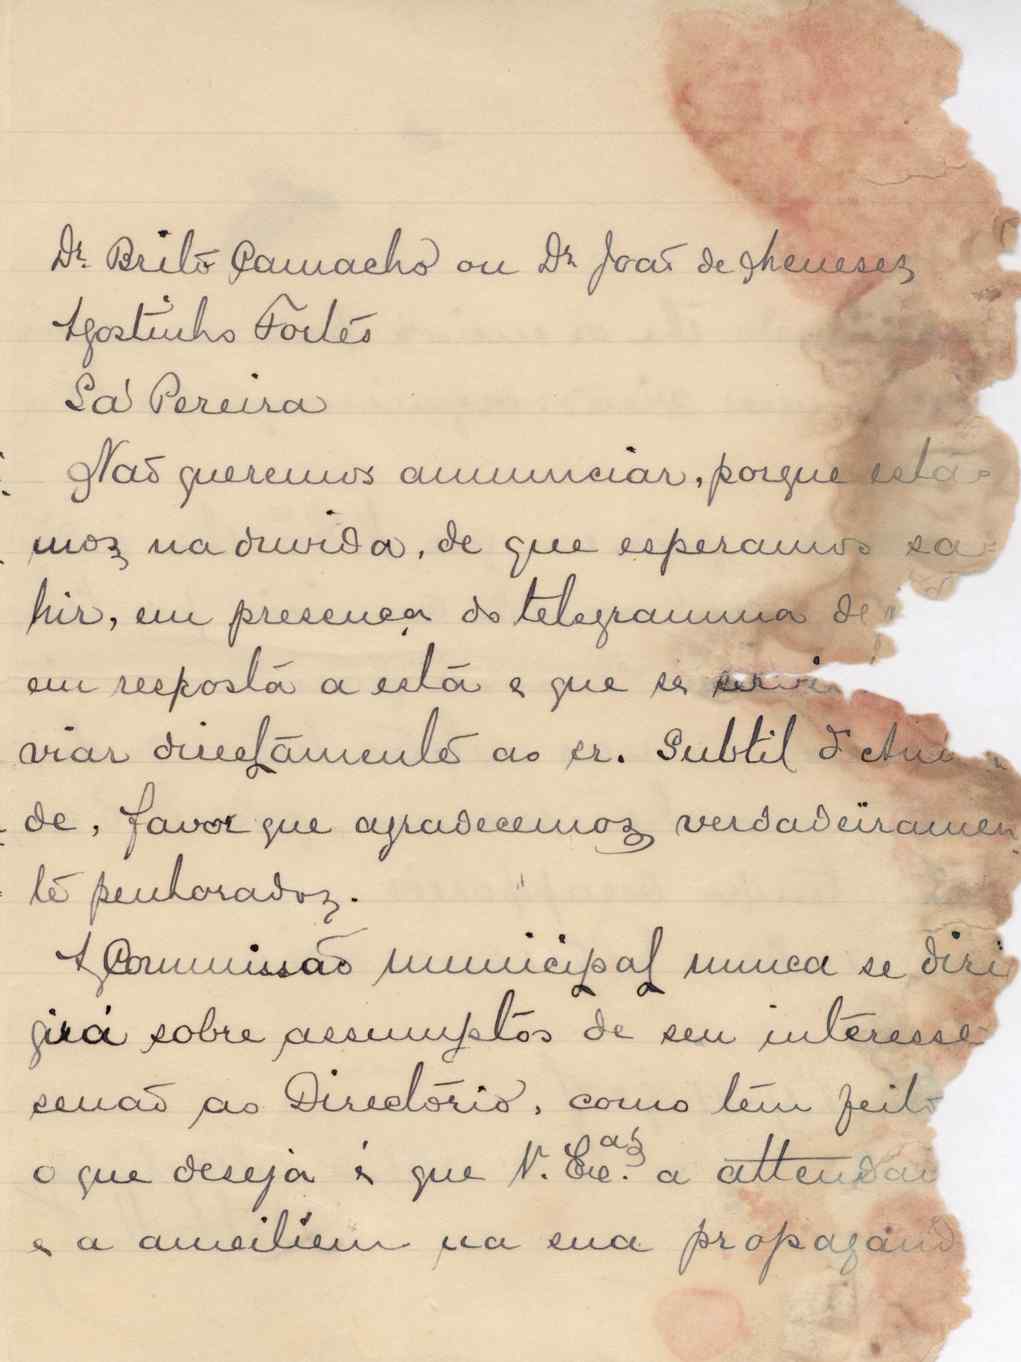 Dr. Brito Camacho ou Dr. João de Menesez
Agostinho Fortes
Sá Pereira
Não queremos annunciar, porque está-
moz na duvida, de que esperamos sa-
hir, em presença do telegramma de
em resposta a esta e que se
viar directamente ao sr. Subtil d'
de, favor que agradecemoz verdadeiramen
te penhoradoz.
A Commissão municipal nunca se diri
girá sobre assumptos de seu interesse
senão ao Directório, como têm feito
o que deseja é que V. Ex.as a attendam
e a auxiliem na sua propagand